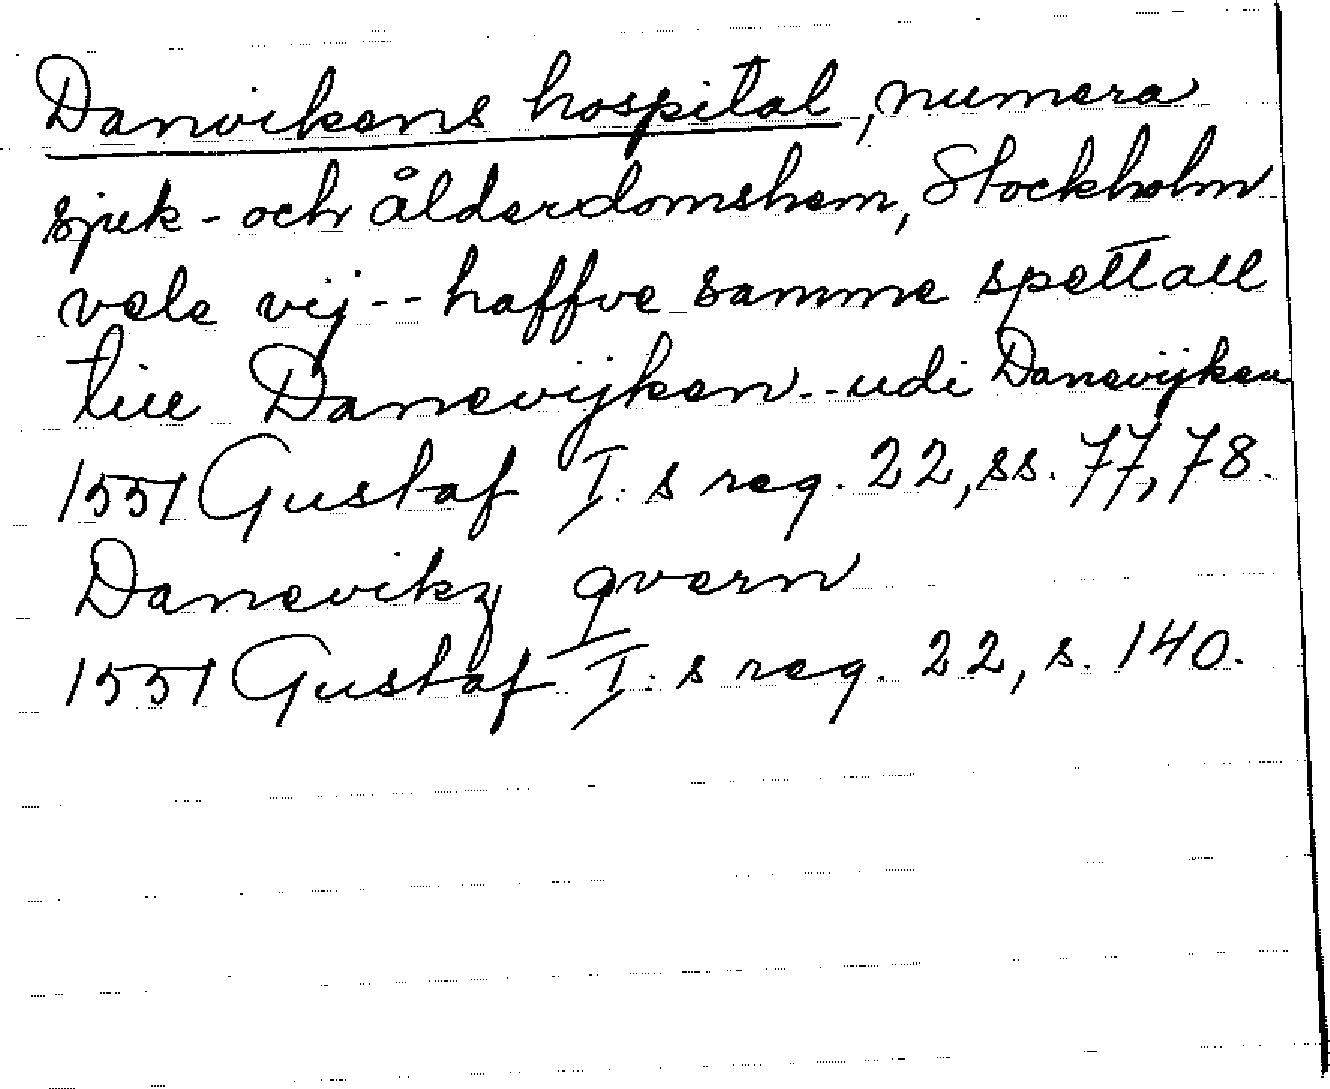 Danvikens hospital, numera
sjuk- och ålderdomshem, Stockholm
vele vij -- haffve samme spettall
till Danevijken -- udi Danevijken
1551 Gustaf I:s reg. 22, ss. 77, 78.
Danevikz qvern
1551 Gustaf I:s reg. 22, s. 140.